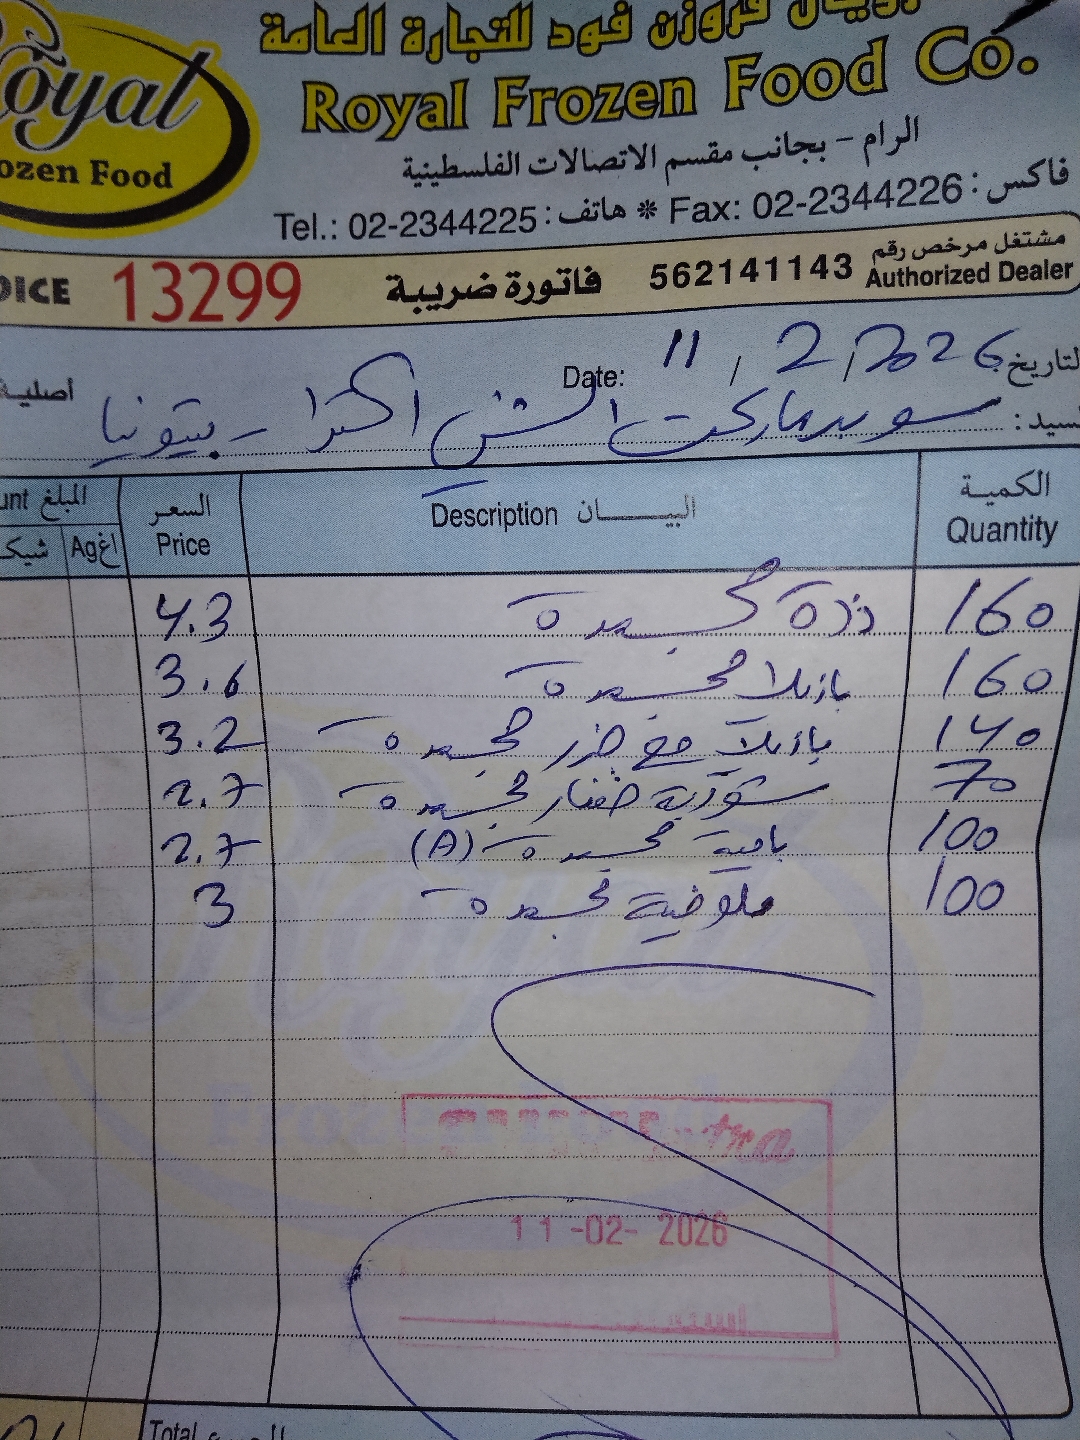 Royal
رويال فروزن فود للتجارة العامة
Royal Frozen Food Co.
ozen Food
الرام - بجانب مقسم الاتصالات الفلسطينية
Tel.: 02-2344225 : هاتف * Fax: 02-2344226 : فاكس
OICE 13299 فاتورة ضريبة 562141143 مشتغل مرخص رقم
Authorized Dealer
Date: 11 / 2 / 2026 لتاريخ
أصلية
سيد : سوبرماركت الشني اكسترا - بيتونيا
الكمية Quantity البيـــــان Description السعر Price المبلغ unt
اغ Ag شيك
160 ذرة مجمدة 4.3
160 بازيلا مجمدة 3.6
140 بازيلا مع جزر مجمدة 3.2
70 مجمدة 2.7
100 بامية مجمدة (A) 2.7
100 ملوخية مجمدة 3
tra
11-02-2026
Total